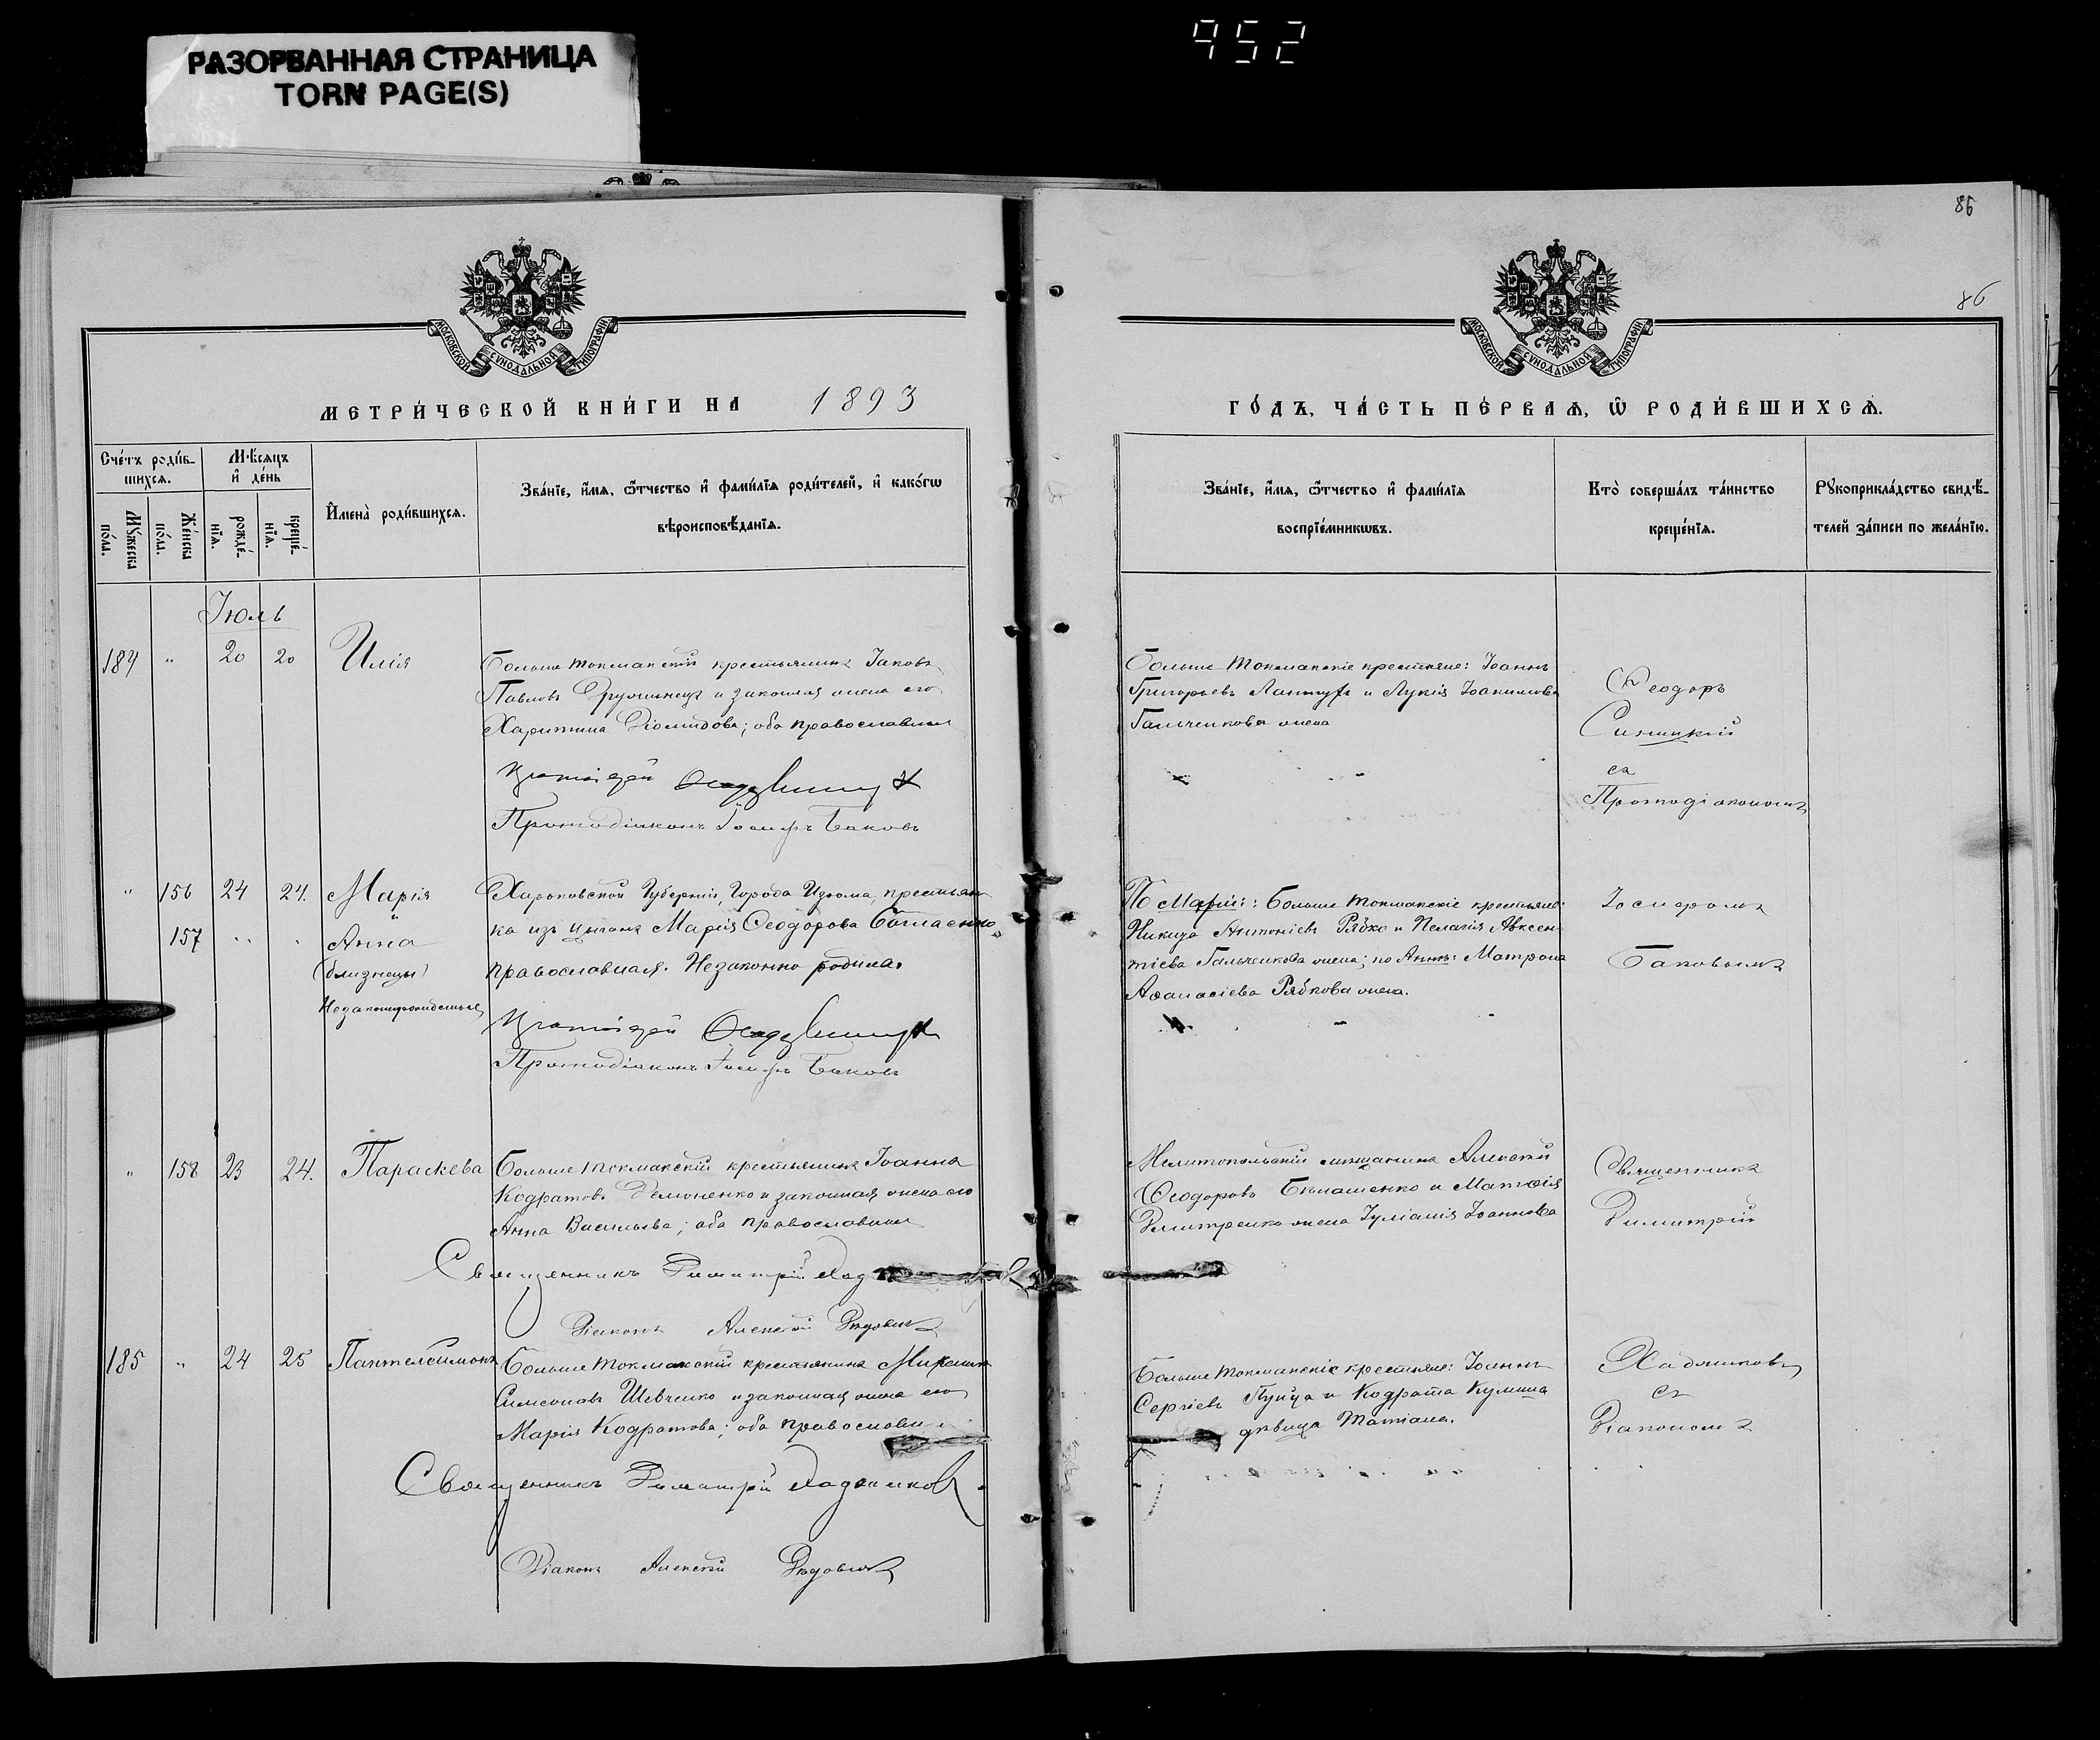 952
РАЗОРВАННАЯ СТРАНИЦА
TORN PAGE(S)
86
86
МОСКОВСКОЙ СѴНОДАЛЬНОЙ ТИПОГРАФІИ
МОСКОВСКОЙ СѴНОДАЛЬНОЙ ТИПОГРАФІИ
МЕТРИ́ЧЕСКОЙ КНИ́ГИ НА 1893
ГО́ДЪ, ЧА́СТЬ ПЕ́РВАѦ, Ѿ РОДИ́ВШИХСѦ.
Сче́тъ роди́в-
шихсѧ.
Мѣ́сѧцъ
и҆ де́нь
Мꙋ́жеска
по́ла.
Же́нска
по́ла.
рожде́-
нїѧ.
креще́-
нїѧ.
И҆мена̀ роди́вшихсѧ.
Зва́нїе, и҆́мѧ, ѻ҆́тчество и҆ фами́лїѧ роди́телей, и҆ како́гѡ
вѣроисповѣ́данїѧ.
Зва́нїе, и҆́мѧ, ѻ҆́тчество и҆ фами́лїѧ
воспрїе́мникѡвъ.
Кто̀ соверша́лъ та́инство
креще́нїѧ.
Рꙋкоприкла́дство свидѣ́-
телей за́писи по жела́нїю.
Іюль
184 " 20 20 Илія
Больше Токмакскій крестьянинъ Іаковъ
Павловъ и законная жена его
Харитина Діомидова; оба православные
Протодіаконъ Іосифъ Баковъ
Больше Токмакскіе крестьяне: Іоаннъ
Григорьевъ и Лукія Іоакимова
Гальченкова жена
Ѳеодоръ
Синицкій
съ
Протодіакономъ
" 156 24 24. Марія
"
157 " " Анна
(близнецы)
Незаконнорожденныя
Харьковской Губерніи, Города Изюма, крестьян
ка изъ цыганъ Марія Ѳеодорова
православная. Незаконно родила.
Протодіаконъ Іосифъ Баковъ
По Маріи: Больше Токмакскіе крестьяне:
Никита Антоніевъ Рябко и Пелагія Авксен
тіева Гальченкова жена; по Аннѣ: Матрона
Аѳанасіева Рябкова жена.
Іосифомъ
Баковымъ
" 158 23 24. Параскева
Больше Токмакскій крестьянинъ Іоаннъ
Кодратовъ Демоненко и законная жена его
Анна Васильева; оба православные
Священникъ Димитрій
Діаконъ Алексій
Мелитопольскій мѣщанинъ Алексій
Ѳеодоровъ и Матѳія
Дмитренко жена Іуліанія Іоаннова
Священникъ
Димитрій
185 " 24 25 Пантелеимонъ
Больше Токмакскій крестьянинъ
Симеоновъ Шевченко и законная жена его
Марія Кодратова; оба православные
Священникъ Димитрій Хаджиновъ
Діаконъ Алексій
Больше Токмакскіе крестьяне: Іоаннъ
Сергіевъ и Кодрата
дѣвица Татіана.
Хаджиновъ
съ
Діакономъ